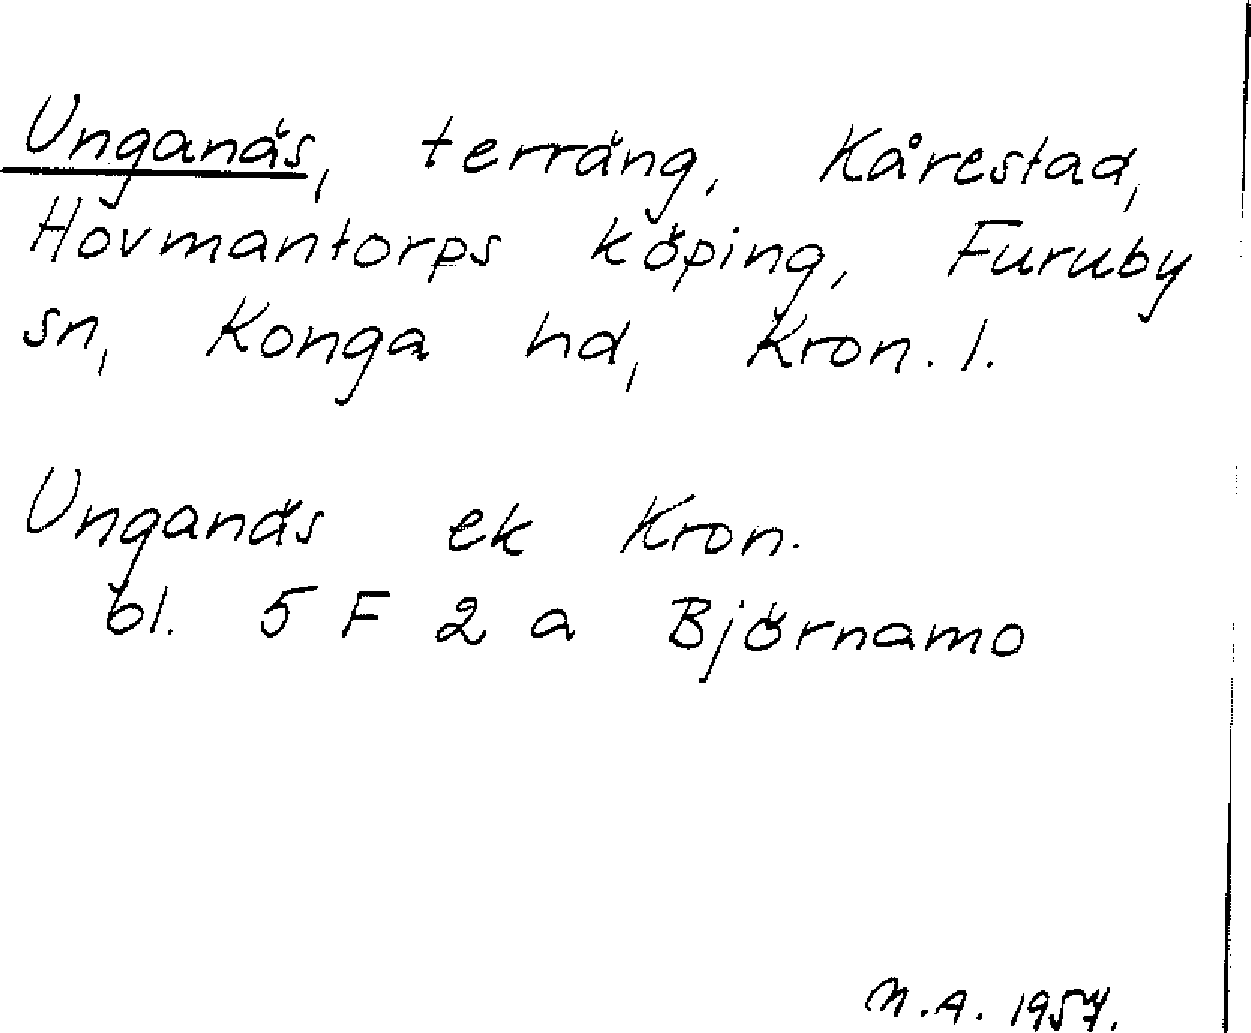 Unganäs, terräng, Kårestad,
Hovmantorps köping, Furuby
sn, Konga hd, Kron. l.
Unganäs ek Kron.
bl. 5 F 2 a Björnamo
M.A. 1957.